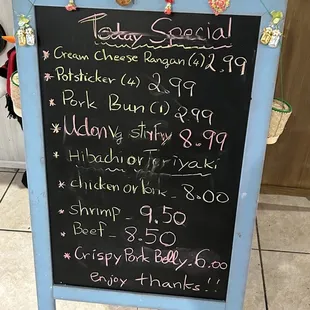 Today Special
* Cream Cheese Rangan (4) 2.99
* Potsticker (4) 2.99
* Pork Bun (1) 2.99
* Udon Vg stir fry 8.99
* Hibachi or Teriyaki
* chicken or Pork - 8.00
* shrimp - 9.50
* Beef - 8.50
* Crispy Pork Belly - 6.00
enjoy thanks!!